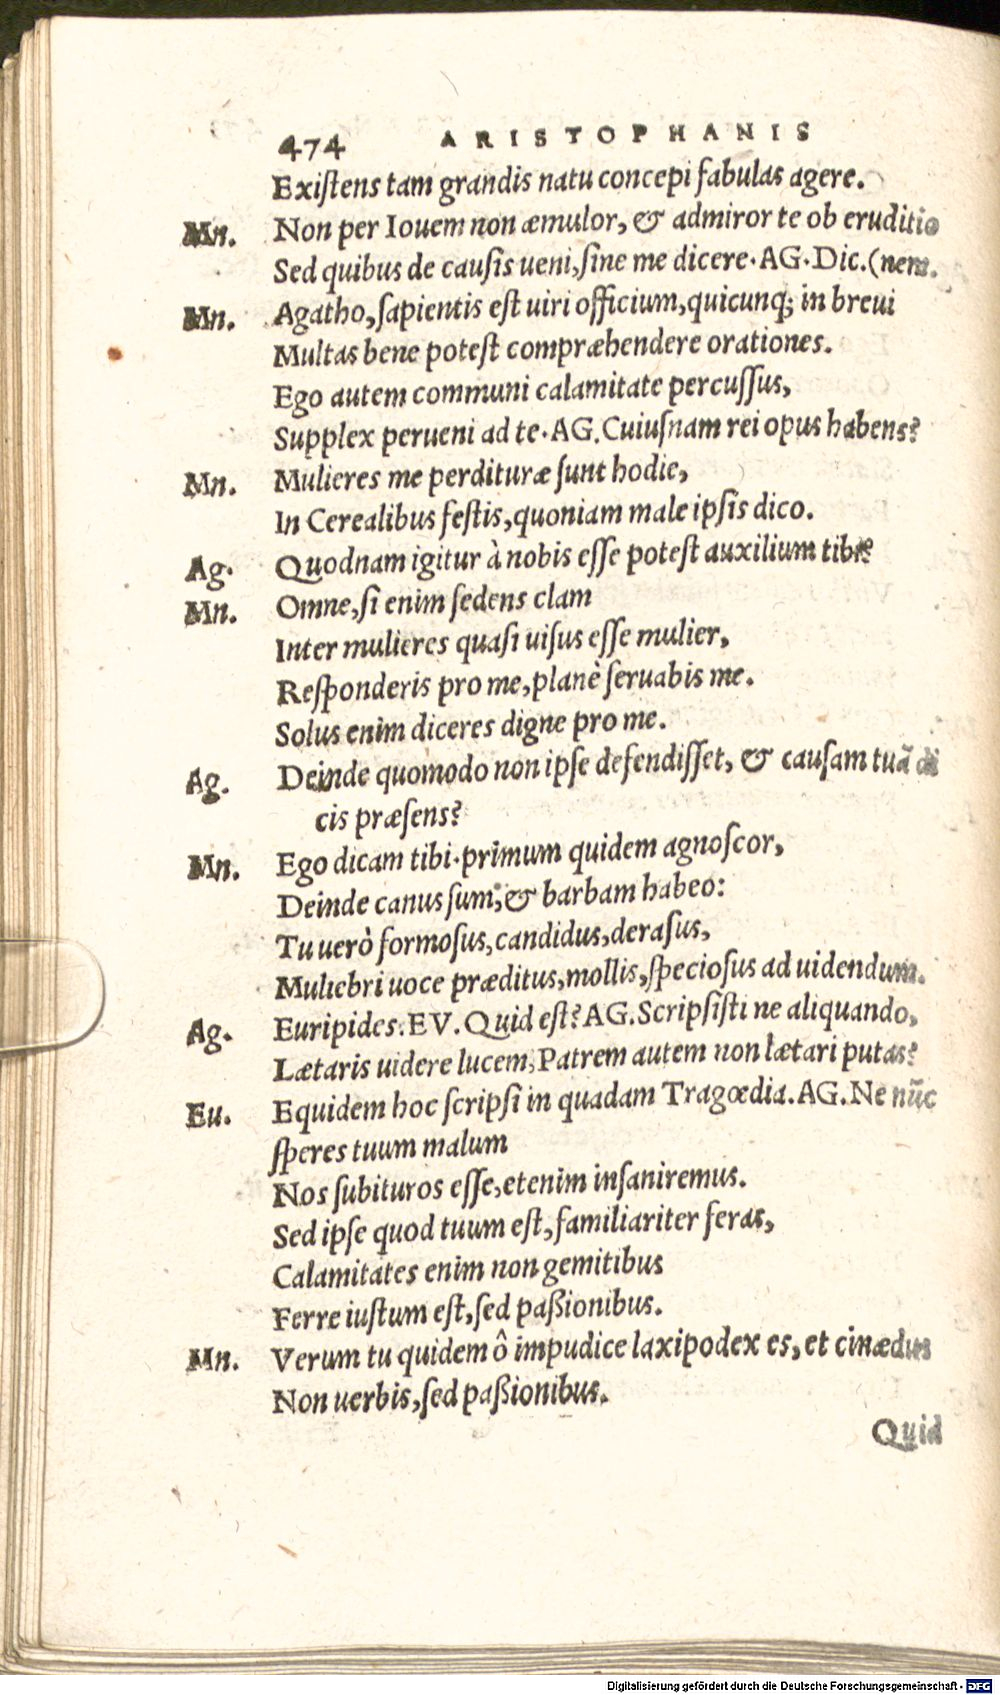 474 ARISTOPHANIS
Exiſtens tam grandis natu concepi fabulas agere.
Mn. Non per Iouem non æmulor, & admiror te ob eruditio
Sed quibus de cauſis ueni, ſine me dicere. AG. Dic. (nem.
Mn. Agatho, ſapientis eſt uiri officium, quicunq; in breui
Multas bene poteſt compræhendere orationes.
Ego autem communi calamitate percuſſus,
Supplex perueni ad te. AG. Cuiuſnam rei opus habens?
Mn. Mulieres me perdituræ ſunt hodie,
In Cerealibus feſtis, quoniam male ipſis dico.
Ag. Quodnam igitur à nobis eſſe poteſt auxilium tibi?
Mn. Omne, ſi enim ſedens clam
Inter mulieres quaſi uiſus eſſe mulier,
Reſponderis pro me, planè ſeruabis me.
Solus enim diceres digne pro me.
Ag. Deinde quomodo non ipſe defendiſſet, & cauſam tuã di
cis præſens?
Mn. Ego dicam tibi. primum quidem agnoſcor,
Deinde canus ſum, & barbam habeo:
Tu uerò formoſus, candidus, deraſus,
Muliebri uoce præditus, mollis, ſpecioſus ad uidendum.
Ag. Euripides. EV. Quid eſt? AG. Scripſiſti ne aliquando,
Lætaris uidere lucem, Patrem autem non lætari putas?
Eu. Equidem hoc ſcripſi in quadam Tragœdia. AG. Ne nũc
ſperes tuum malum
Nos ſubituros eſſe, etenim inſaniremus.
Sed ipſe quod tuum eſt, familiariter feras,
Calamitates enim non gemitibus
Ferre iuſtum eſt, ſed paßionibus.
Mn. Verum tu quidem ô impudice laxipodex es, et cinædus
Non uerbis, ſed paßionibus.
Quid
Digitalisierung gefördert durch die Deutsche Forschungsgemeinschaft - DFG